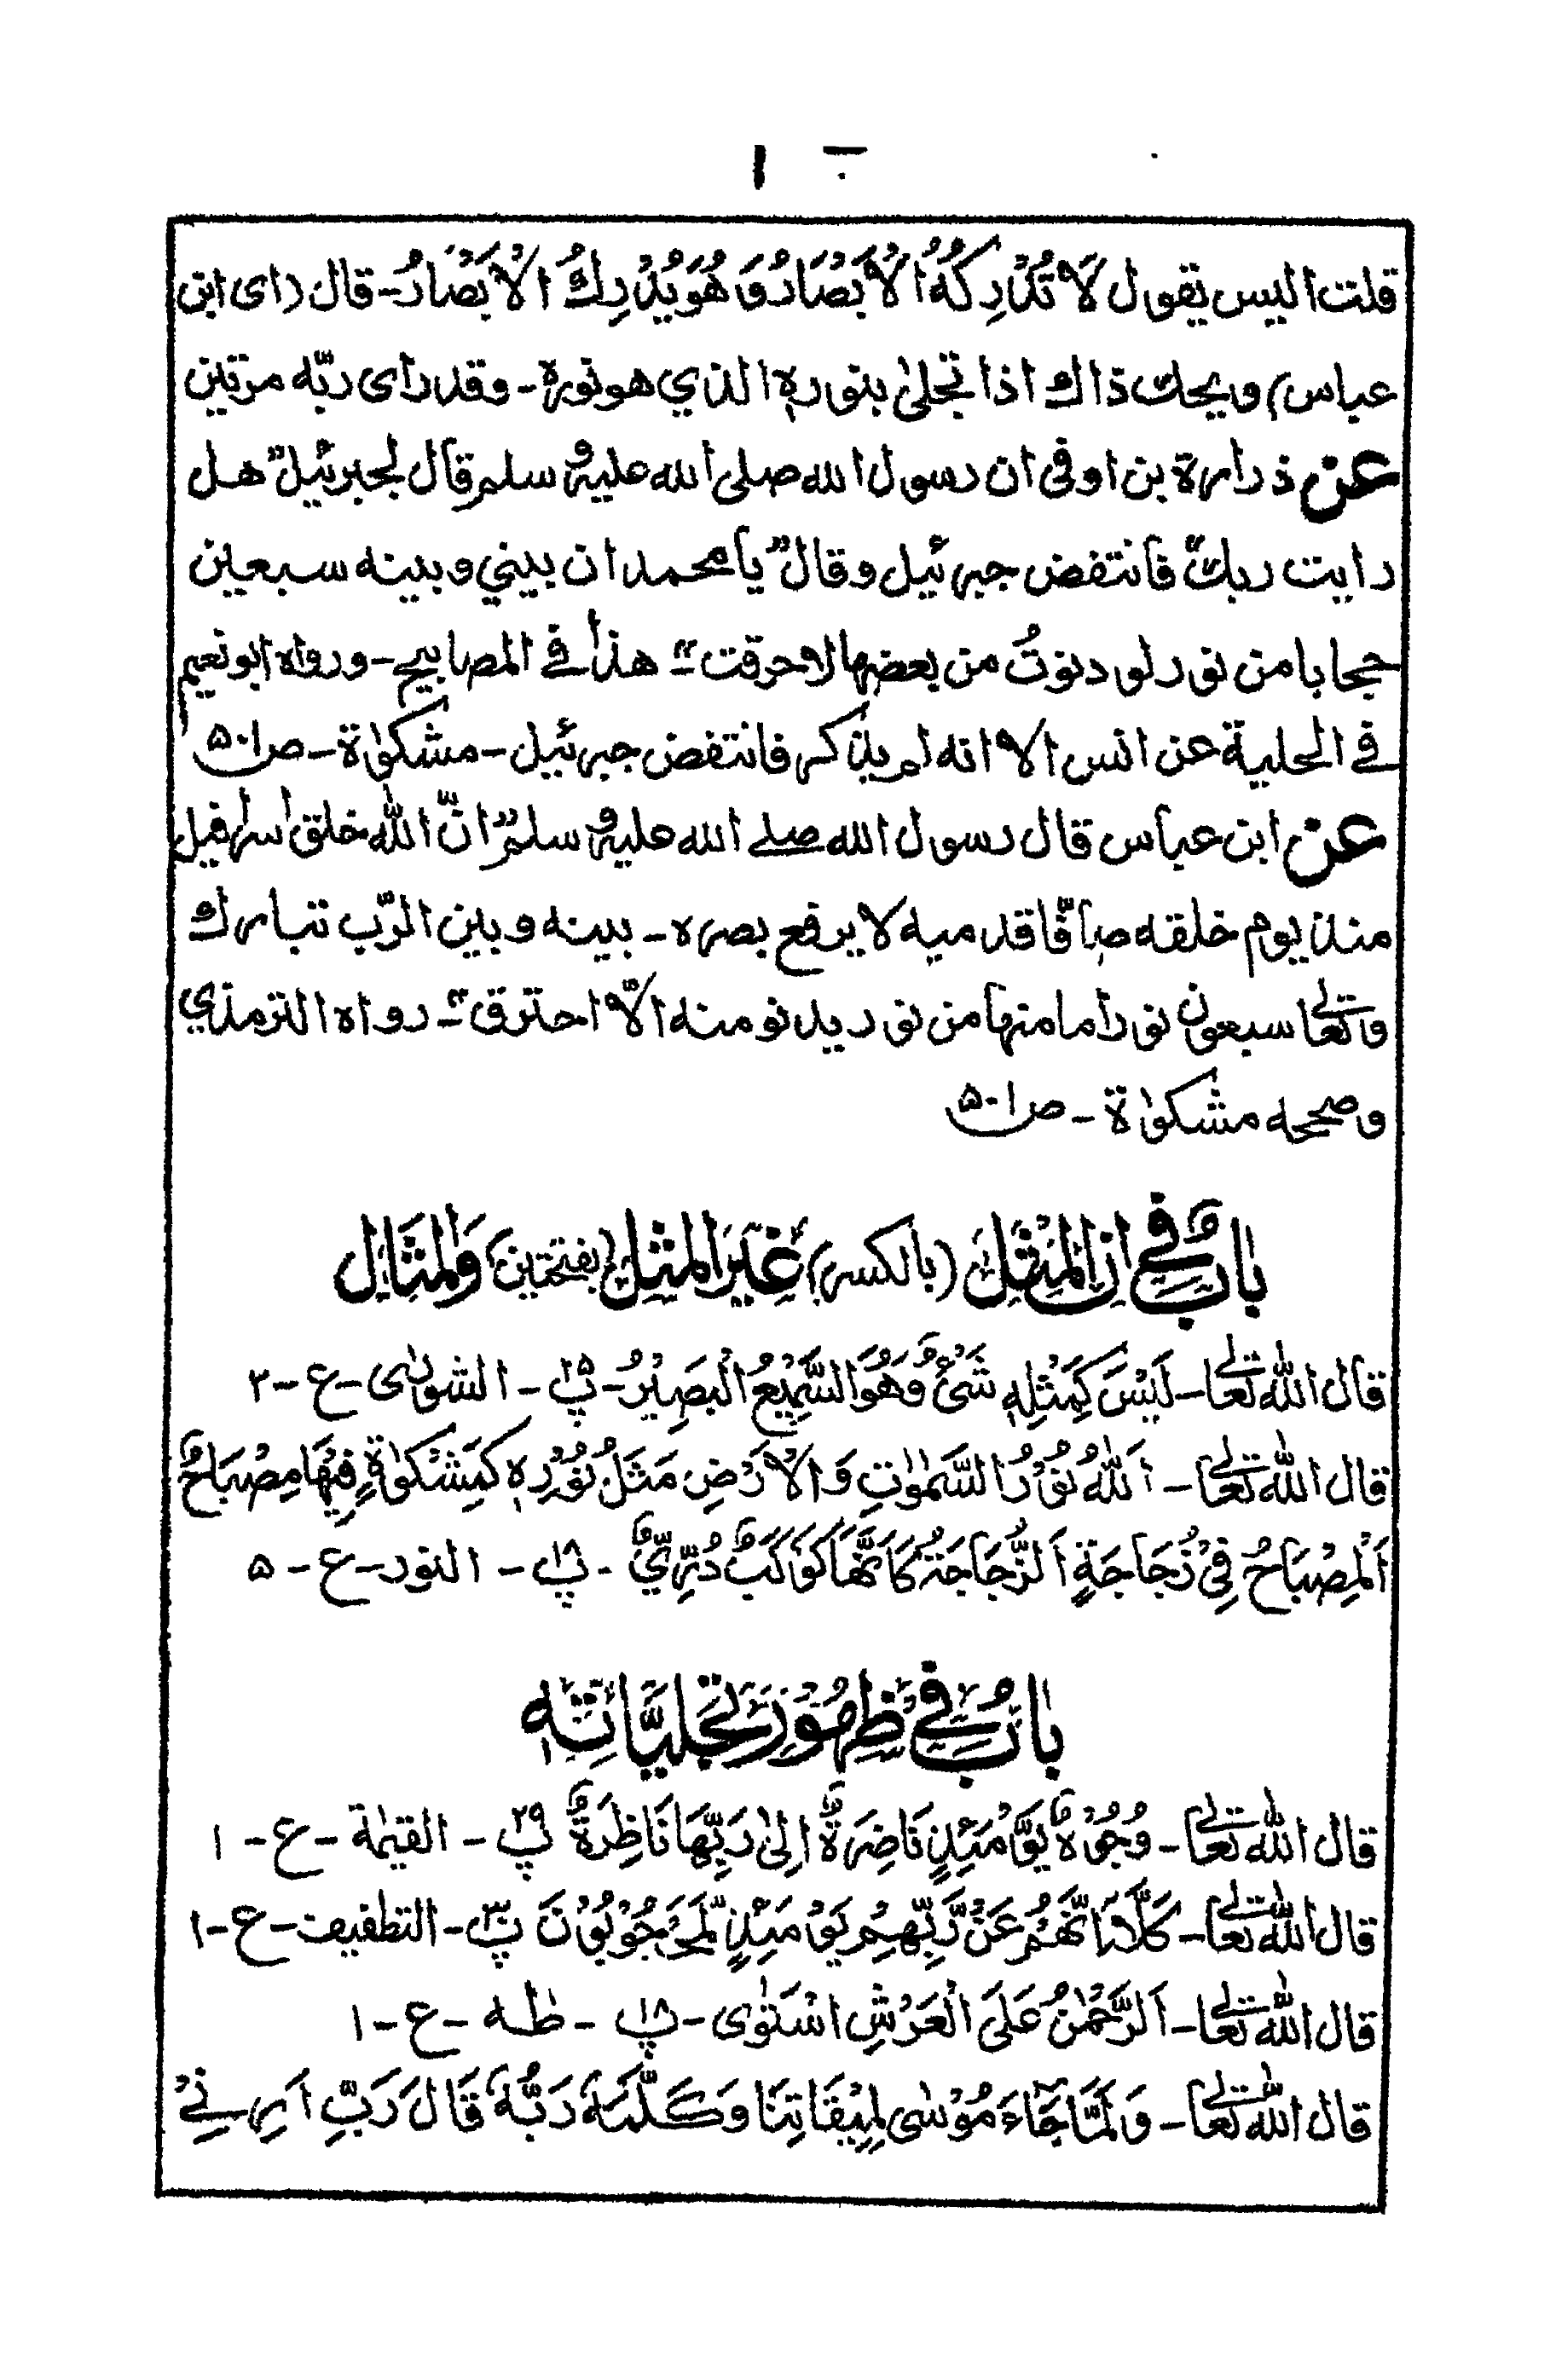 قلت اليس يقول لَا تُدْرِكُهُ الْاَبْصَارُ وَ هُوَ يُدْرِكُ الْاَبْصَارَ- قال (اى ابن
عباس) ويحك ذاك اذا تجلىٰ بنوره الذي هو نوره - وقد راى ربّه مرتين
عن ذرارة بن اوفى ان رسول الله صلى الله عليه و سلم قال لجبرئيل" هل
رايت ربك" فانتفض جبرئيل وقال" يا محمد ان بيني و بينه سبعين
حجابا من نور لو دنوتُ من بعضها لاحرقت"- هذا في المصابيح - ورواه ابو نعيم
في الحلية عن انس الا انه لم يذكر فانتفض جبرئيل - مشكوٰة - ص ۵۰۱
عن ابن عباس قال رسول الله صلے الله عليه و سلم" انّ الله خلق اسرافيل
منذ يوم خلقه صافًّا قدميه لا يرفع بصره - بينه و بين الرّب تبارك
وتعالى سبعون نورا ما منها من نور يدنو منه الّا احترق"- رواه الترمذي
وصححه مشكوٰة - ص ۵۰۱
بابٌ في ان المِثْل (بالكسر) غير المثل (بفتحتين) والمثال
قال الله تعالى - لَيْسَ كَمِثْلِهٖ شَىْءٌ وَهُوَ السَّمِيْعُ الْبَصِيْرُ - پ ۲۵ - الشورٰى - ع - ۲
قال الله تعالى - اَللّٰهُ نُوْرُ السَّمٰوٰتِ وَ الْاَرْضِ مَثَلُ نُوْرِهٖ كَمِشْكٰوةٍ فِيْهَا مِصْبَاحٌ
اَلْمِصْبَاحُ فِىْ زُجَاجَةٍ اَلزُّجَاجَةُ كَاَنَّهَا كَوْكَبٌ دُرِّىٌّ - پ ۱۸ - النور - ع - ۵
بابٌ في ظهور تجلياته
قال الله تعالى - وُجُوْهٌ يَّوْمَئِذٍ نَاضِرَةٌ اِلىٰ رَبِّهَا نَاظِرَةٌ پ ۲۹ - القيٰمة - ع - ۱
قال الله تعالى - كَلَّا اِنَّهُمْ عَنْ رَّبِّهِمْ يَوْمَئِذٍ لَّمَحْجُوْبُوْنَ پ ۳۰ - التطفيف - ع - ۱
قال الله تعالى - اَلرَّحْمٰنُ عَلَى الْعَرْشِ اسْتَوٰى - پ ۱۸ - طٰه - ع - ۱
قال الله تعالى - وَلَمَّا جَآءَ مُوْسٰى لِمِيْقَاتِنَا وَكَلَّمَهٗ رَبُّهٗ قَالَ رَبِّ اَرِنِىْ